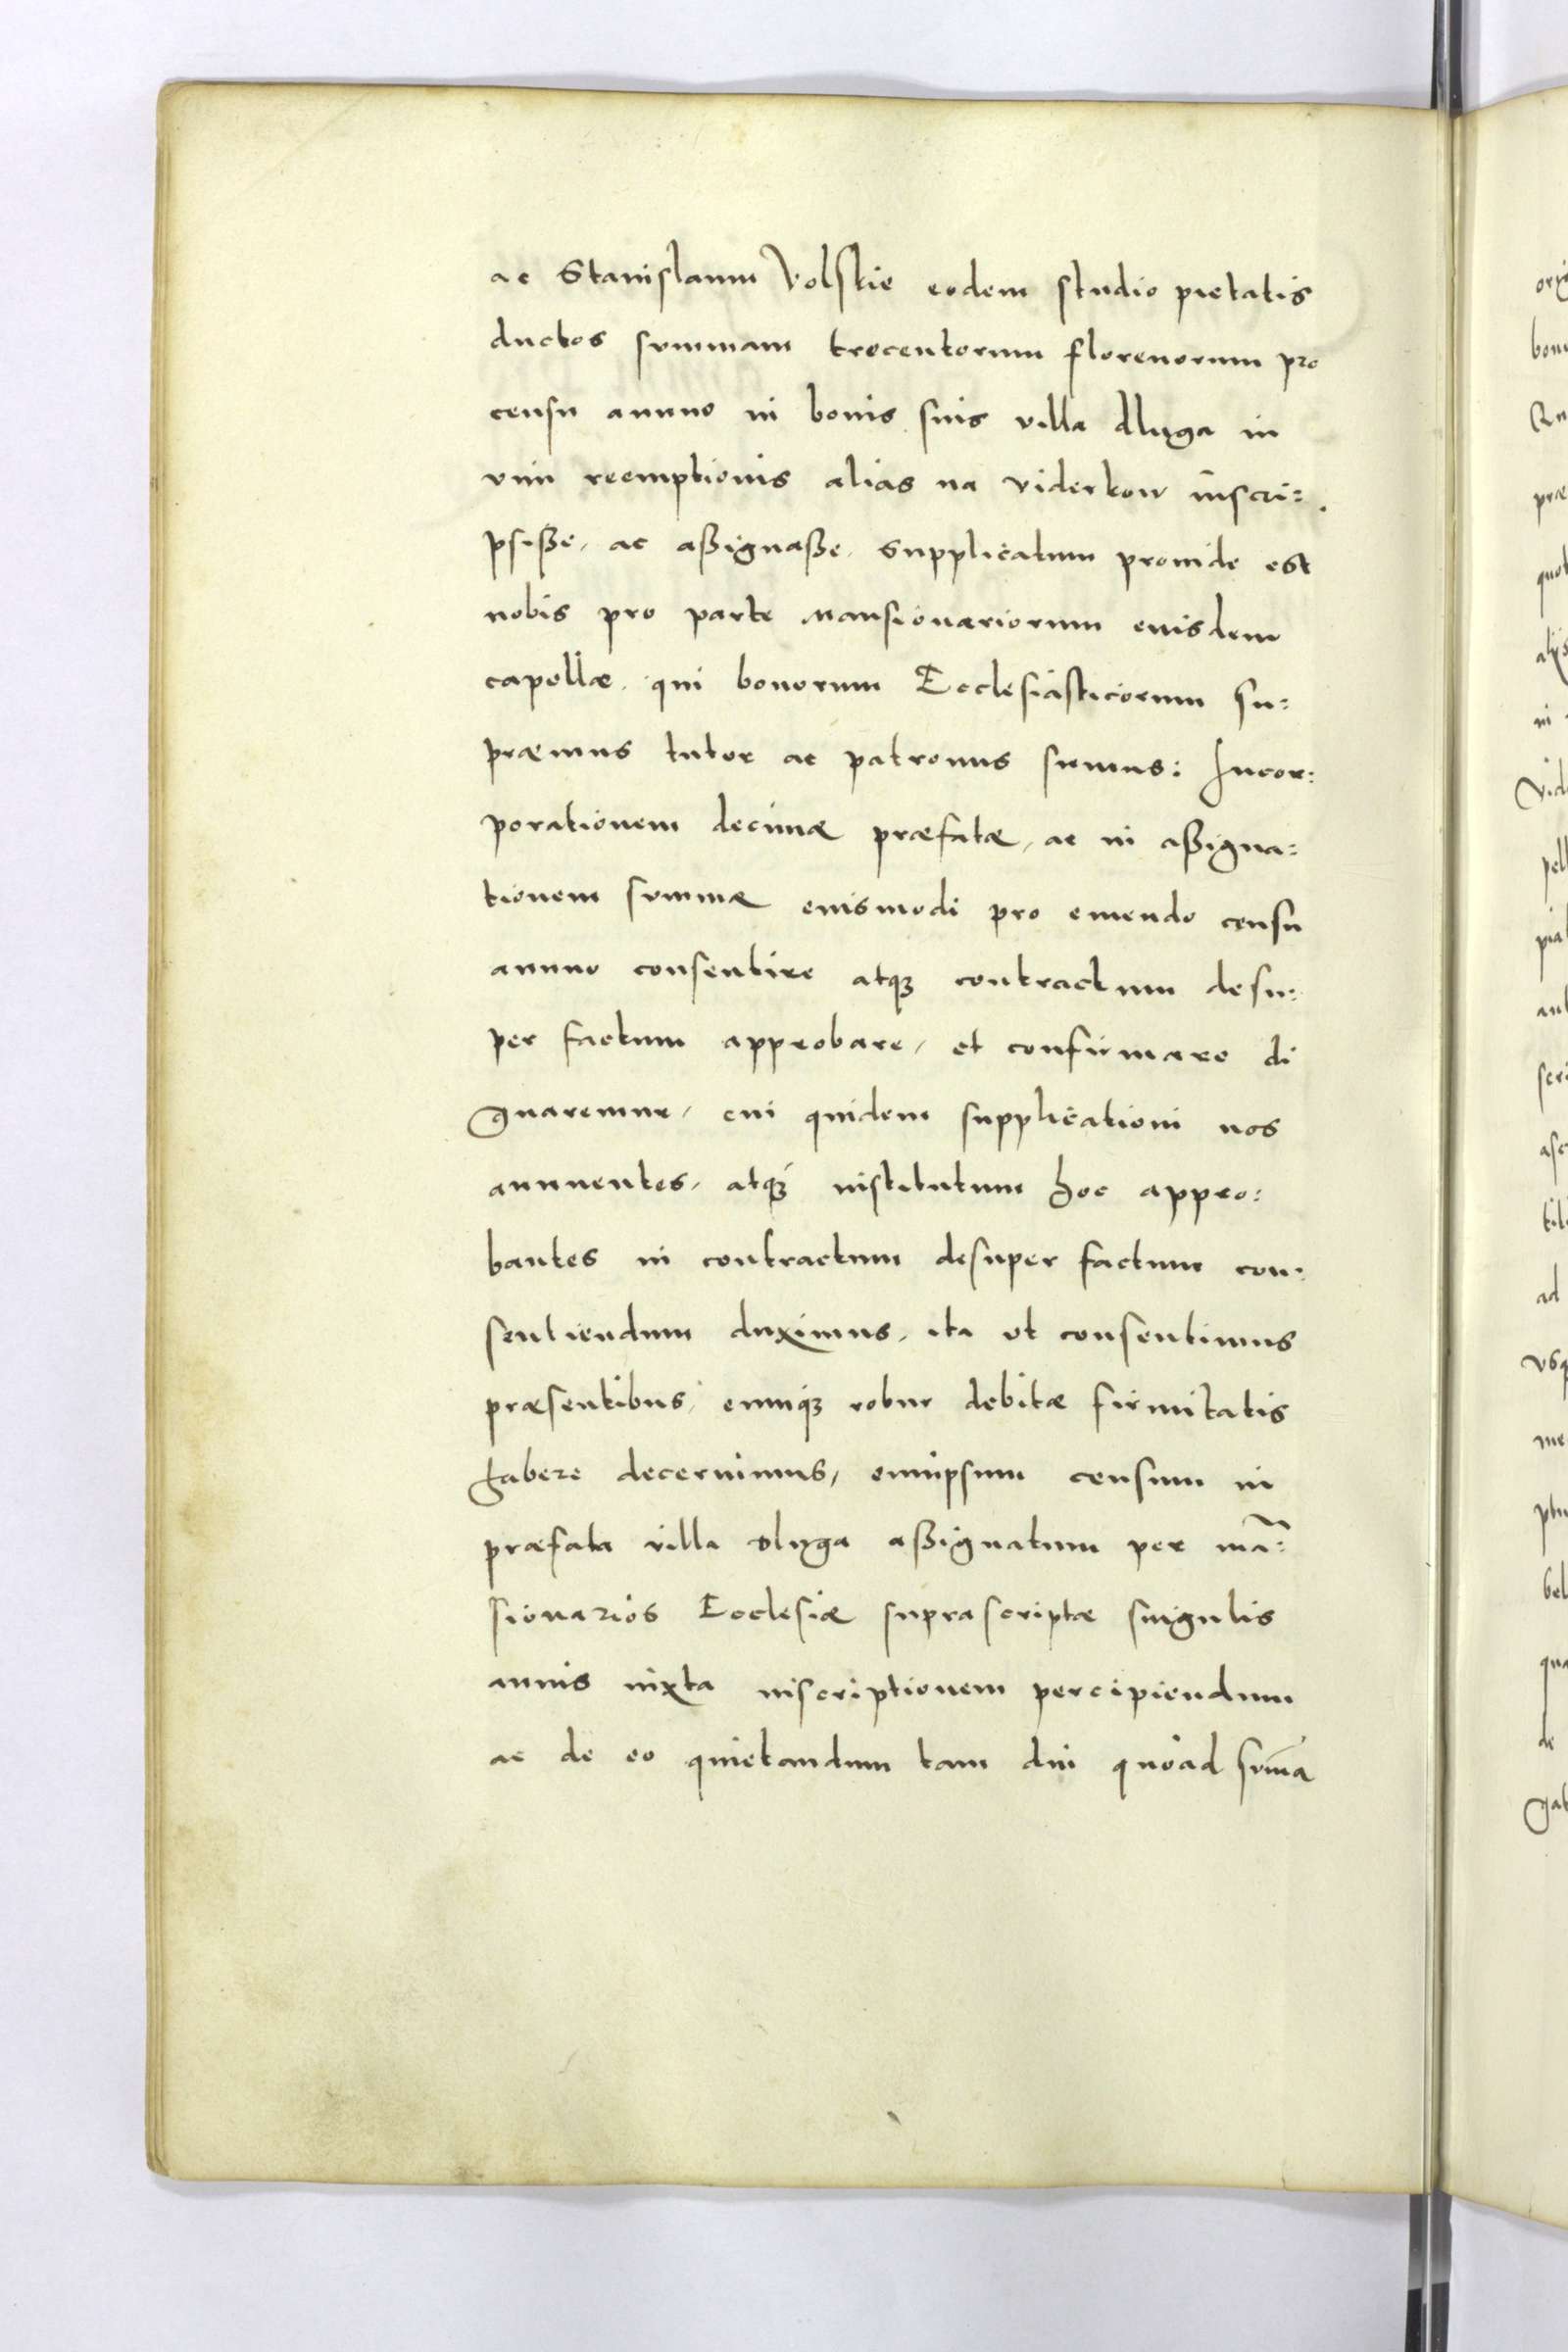 ac Stanislaum Volskie eodem studio pietatis
ductos summam trecentorum florenorum pro
censu annuo in bonis suis villa dluga in
vim reemptionis alias na viderkow inscri:
psiße, ac aßignaße. Supplicatum proinde est
nobis pro parte Mansionariorum euisdem
capellæ. qui bonorum Ecclesiasticorum su:
præmus tutor ac patronus sumus: Incor:
porationem decimæ præfatæ, ac in aßigna:
tionem summæ euismodi pro emendo censu
annuo consentire atqꝫ contractum desu:
per factum approbare, et confirmare di
gnaremur, cui quidem supplicationi nos
annuentes, atqꝫ institutum hoc appro:
bantes in contractum desuper factum con:
sentiendum duximus, ita vt consentimus
præsentibus, eumqꝫ robur debitæ firmitatis
habere decernimus, eumipsum censum in
præfata villa dluga aßignatum per mã:
sionarios Ecclesiæ suprascriptæ singulis
annis iuxta inscriptionem percipiendum
ac de eo quietandum tam diu quoad sum̃a
orig
bon
præ
quot
alijs
in
vid
pell
piat
scri
asc
ad
vsq
me
bel
qua
de